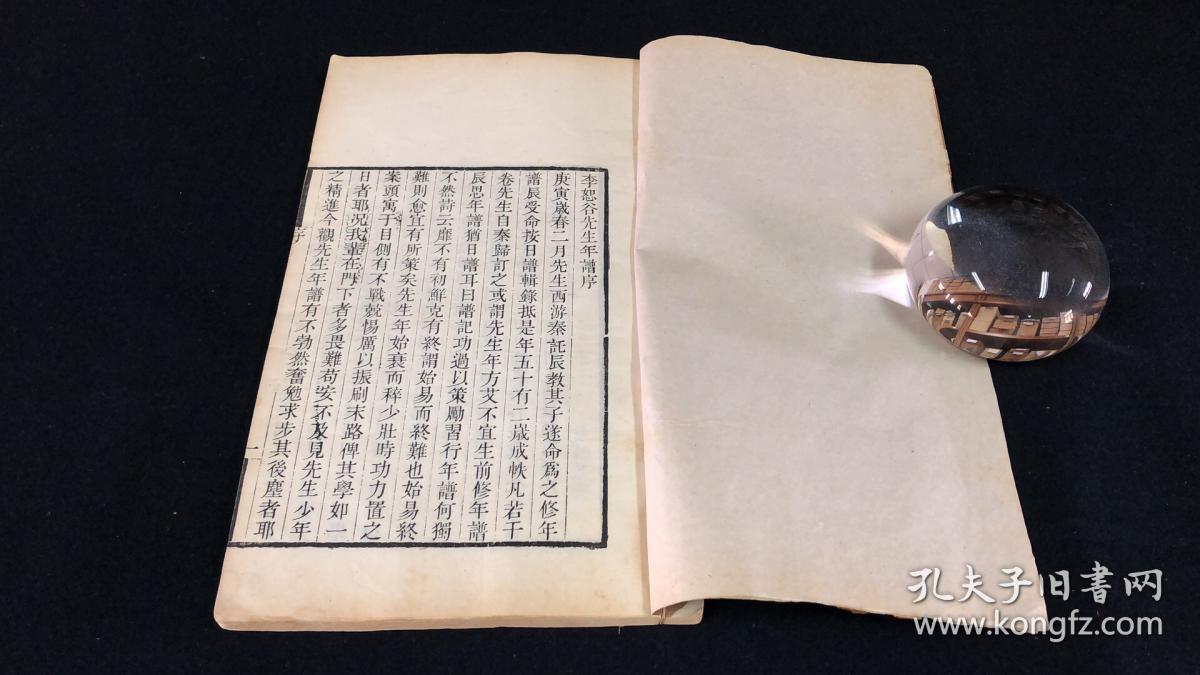 李恕谷先生年譜序
庚寅歲春二月先生西游秦託辰教其子遂命爲之修年
譜辰受命按日譜輯錄抵是年五十有二歲成帙凡若干
卷先生自秦歸訂之或謂先生年方艾不宜生前修年譜
辰思年譜猶日譜耳日譜記功過以策勵習行年譜何獨
不然詩云靡不有初鮮克有終謂始易而終難也始易終
難則愈宜有所策矣先生年始衰而稡少壯時功力置之
案頭寓于目側有不戰兢惕厲以振刷末路俾其學如一
日者耶况我輩在門下者多畏難苟安不及見先生少年
之精進今觀先生年譜有不勃然奮勉求步其後塵者耶
序
一
孔夫子旧書网
www.kongfz.com